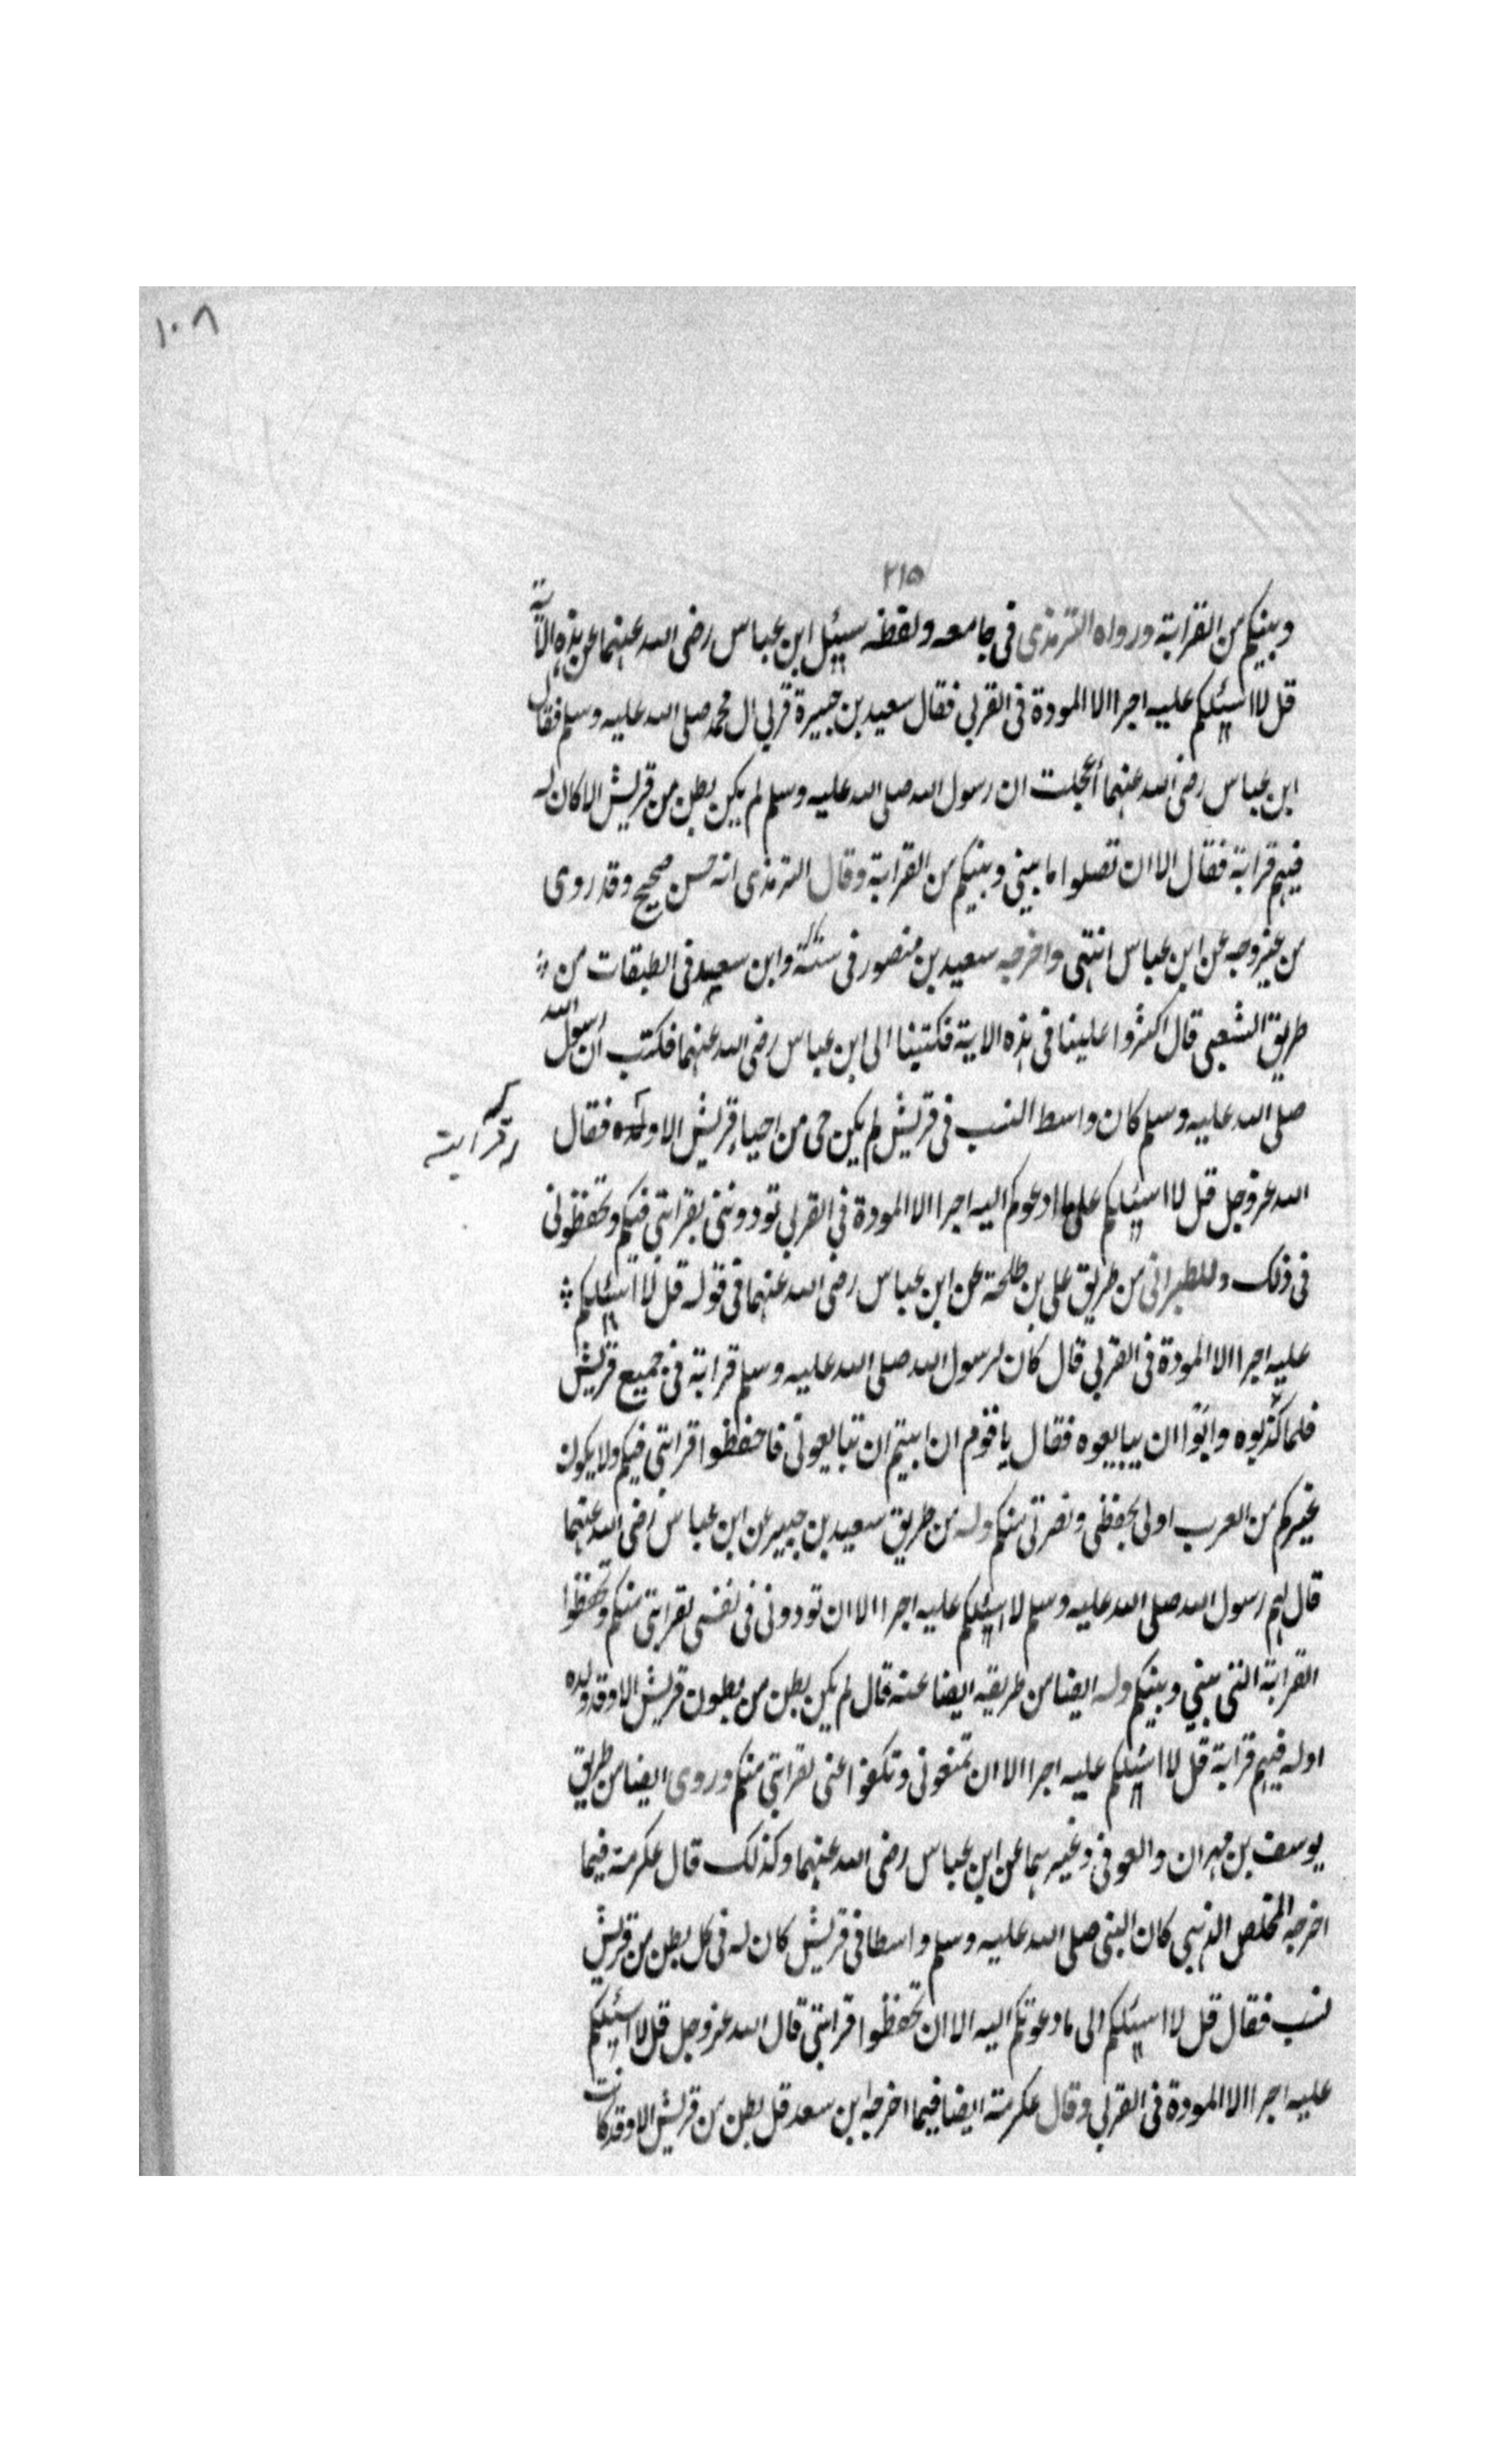 ١٠٨
٢١٥
وبينكم من القرابة ورواه الترمذى فى جامعه ولفظه سئيل ابن عباس رضى الله عنهما عن هذه الآية
قل لا اسئيلكم عليه اجرا الا المودة فى القربى فقال سعيد بن جبيرة قربى ال محمد صلى الله عليه وسلم فقال
ابن عباس رضى الله عنهما أعجلت ان رسول الله صلى الله عليه وسلم لم يكن بطن من قريش الا كان له
فيهم قرابة فقال الا ان تصلوا ما بينى وبينكم من القرابة وقال الترمذى انه حسن صحيح وقد روى
من غير وجه عن ابن عباس انتهى واخرجه سعيد بن منصور فى سننه وابن سعيد فى الطبقات من
طريق الشعبى قال اكثروا علينا فى هذه الاية فكتبنا الى ابن عباس رضى الله عنهما فكتب ان رسول الله
صلى الله عليه وسلم كان واسط النسب فى قريش لم يكن حى من احياء قريش الا ولده فقال
له قرابته
الله عز وجل قل لا اسئيلكم على ما ادعوكم اليه اجرا الا المودة فى القربى تودوننى بقرابتى فيكم وتحفظونى
فى ذلك وللطبرانى من طريق على بن طلحة عن ابن عباس رضى الله عنهما فى قوله قل لا اسئيلكم
عليه اجرا الا المودة فى القربى قال كان لرسول الله صلى الله عليه وسلم قرابة فى جميع قريش
فلما كذبوه وابوا ان يبايعوه فقال يا قوم ان ابيتم ان تبايعونى فاحفظوا قرابتى فيكم ولا يكون
غيركم من العرب اولى بحفظى ونصرتى منكم وله من طريق سعيد بن جبير عن ابن عباس رضى الله عنهما
قال لهم رسول الله صلى الله عليه وسلم لا اسئيلكم عليه اجرا الا ان تودونى فى نفسى بقرابتى منكم وتحفظوا
القرابة التى بينى وبينكم وله ايضا من طريقه ايضا عنه قال لم يكن بطن من بطون قريش الا وقد ولده
اوله فيهم قرابة قل لا اسئيلكم عليه اجرا الا ان تمنعونى وتكفوا عنى بقرابتى منكم وروى ايضا من طريق
يوسف بن مهران والعوفى وغيرهما عن ابن عباس رضى الله عنهما وكذلك قال عكرمة فيما
اخرجه المخلص الذهبى كان النبى صلى الله عليه وسلم واسطا فى قريش كان له فى كل بطن من قريش
نسب فقال قل لا اسئيلكم الى ما دعوتكم اليه الا ان تحفظوا قرابتى قال الله عز وجل قل لا اسئيلكم
عليه اجرا الا المودة فى القربى وقال عكرمة ايضا فيما اخرجه ابن سعد قل بطن من قريش الا وقد كانت